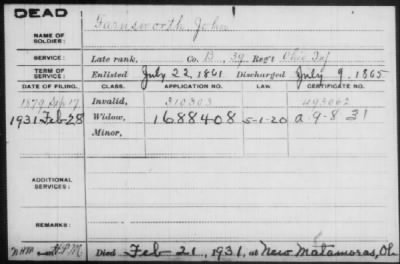 DEAD
NAME OF SOLDIER: Farnsworth John
SERVICE: Late rank, Co. B, 39 Reg't Ohio Inf
TERM OF SERVICE: Enlisted July 22, 1861 Discharged July 9, 1865
DATE OF FILING. CLASS. APPLICATION NO. LAW CERTIFICATE NO.
1879 Sep 17 Invalid, 310303 493062
1931 Feb 28 Widow, 1688408 5-1-20 a 9-8 31
Minor,
ADDITIONAL SERVICES:
REMARKS:
Died Feb 21, 1931, at New Matamoras, Oh.